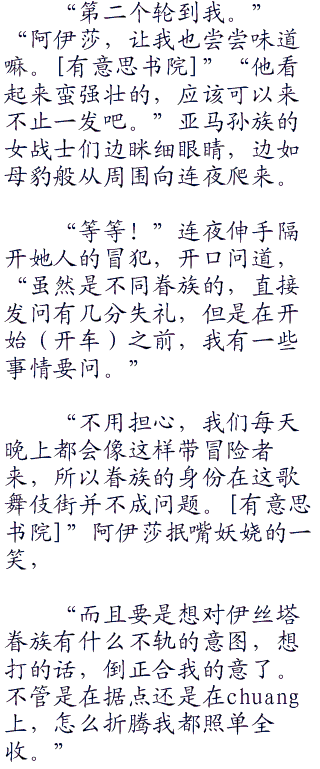 “第二个轮到我。”
“阿伊莎，让我也尝尝味道
嘛。[有意思书院]”“他看
起来蛮强壮的，应该可以来
不止一发吧。”亚马孙族的
女战士们边眯细眼睛，边如
母豹般从周围向连夜爬来。
“等等！”连夜伸手隔
开她人的冒犯，开口问道，
“虽然是不同眷族的，直接
发问有几分失礼，但是在开
始（开车）之前，我有一些
事情要问。”
“不用担心，我们每天
晚上都会像这样带冒险者
来，所以眷族的身份在这歌
舞伎街并不成问题。[有意思
书院]”阿伊莎抿嘴妖娆的一
笑，
“而且要是想对伊丝塔
眷族有什么不轨的意图，想
打的话，倒正合我的意了。
不管是在据点还是在chuang
上，怎么折腾我都照单全
收。”